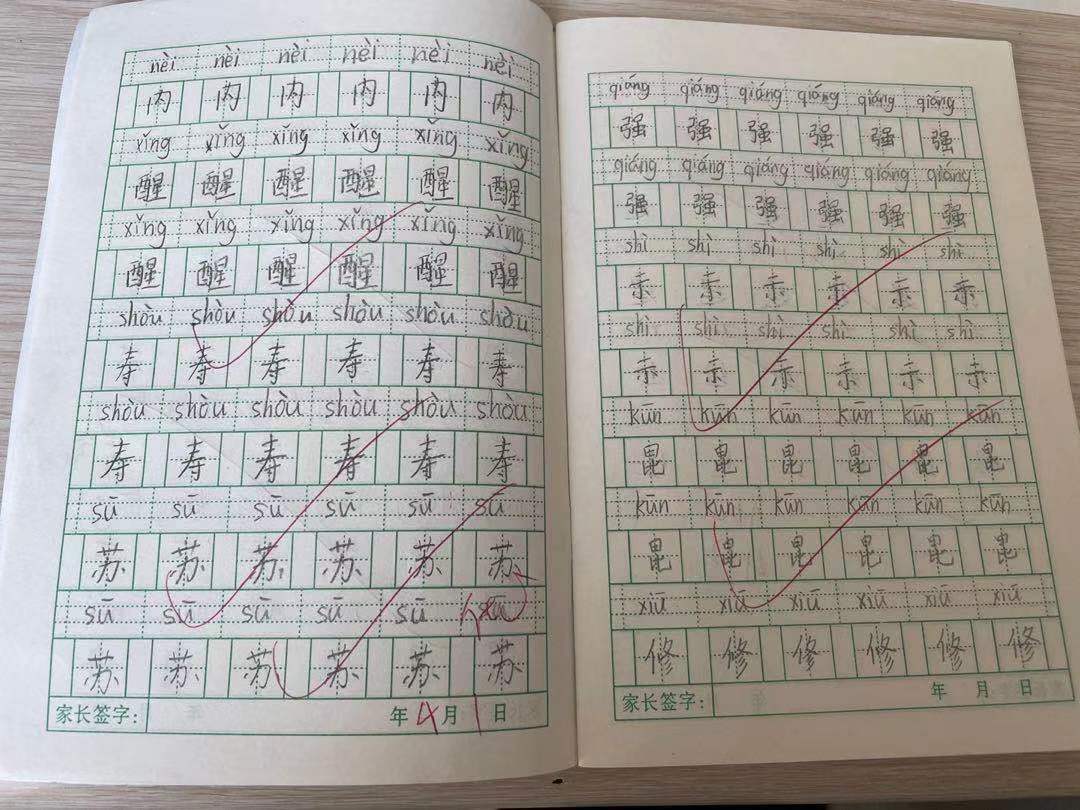 nèi nèi nèi nèi nèi nèi
内 内 内 内 内 内
xǐng xǐng xǐng xǐng xǐng xǐng
醒 醒 醒 醒 醒 醒
xǐng xǐng xǐng xǐng xǐng xǐng
醒 醒 醒 醒 醒 醒
shòu shòu shòu shòu shòu shòu
寿 寿 寿 寿 寿 寿
shòu shòu shòu shòu shòu shòu
寿 寿 寿 寿 寿 寿
sū sū sū sū sū sū
苏 苏 苏 苏 苏 苏
sū sū sū sū sū sū
苏 苏 苏 苏 苏 苏
家长签字: 年 4月 1日
qiáng qiáng qiáng qiáng qiáng qiáng
强 强 强 强 强 强
qiáng qiáng qiáng qiáng qiáng qiáng
强 强 强 强 强 强
shì shì shì shì shì shì
示 示 示 示 示 示
shì shì shì shì shì shì
示 示 示 示 示 示
kūn kūn kūn kūn kūn kūn
昆 昆 昆 昆 昆 昆
kūn kūn kūn kūn kūn kūn
昆 昆 昆 昆 昆 昆
xiū xiū xiū xiū xiū xiū
修 修 修 修 修 修
家长签字: 年 月 日